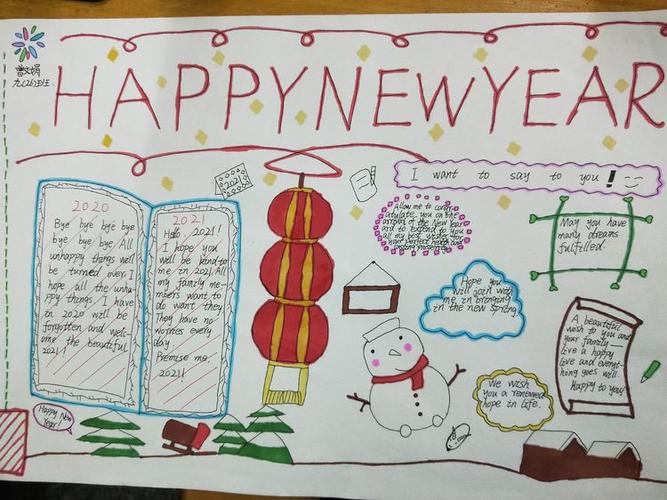 HAPPY NEW YEAR
九(26)班
I want to say to you!
2020
Bye bye bye bye
bye bye bye. All
unhappy things will
be turned over. I
hope all the unha-
ppy things I have
in 2020 will be
forgotten and welc-
ome the beautiful
2021!
2021
Hello, 2021!
I hope you
will be kind to
me in 2021. All
my family me-
mbers want to
do want they
They have no
worries every
day.
Promise me,
2021!
2021
Allow me to congr-
atulate you on the
arrival of the New Year
and to extend to you
all my best wishes for
your perfect health and
May you have
many dreams
fulfilled.
Hope you
will join with
me in bringing
in the new spring
A beautiful
wish to you and
your family—
live a happy
live and everyt-
hing goes well.
Happy to you!
We wish
you a renewed
hope in life.
Happy New
Year!